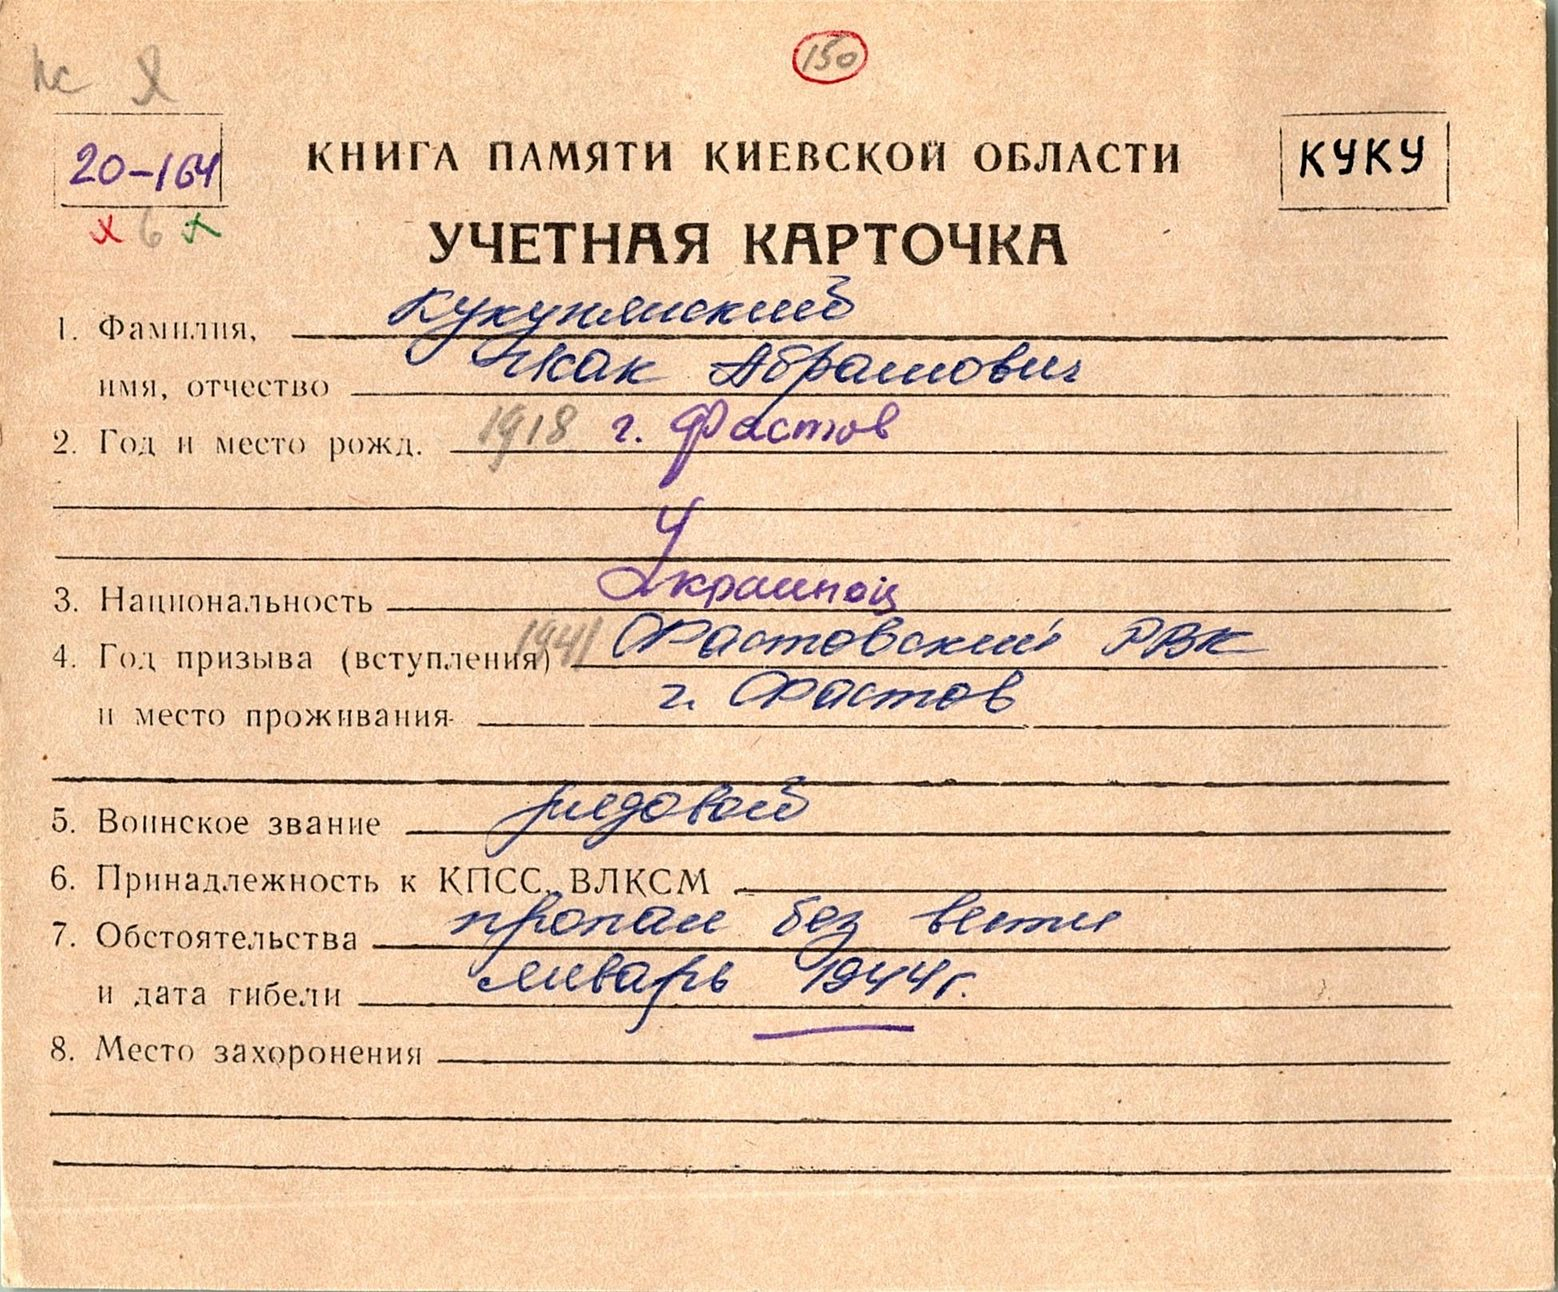 150
20-164
КНИГА ПАМЯТИ КИЕВСКОЙ ОБЛАСТИ
КУКУ
6
УЧЕТНАЯ КАРТОЧКА
1. Фамилия, Кукуянский
имя, отчество Абрамович
2. Год и место рожд. 1918 г. Фастов
3. Национальность Украинец
4. Год призыва (вступления) 1941 Фастовский РВК
и место проживания г. Фастов
5. Воинское звание рядовой
6. Принадлежность к КПСС, ВЛКСМ
7. Обстоятельства пропал без вести
и дата гибели январь 1944г.
8. Место захоронения